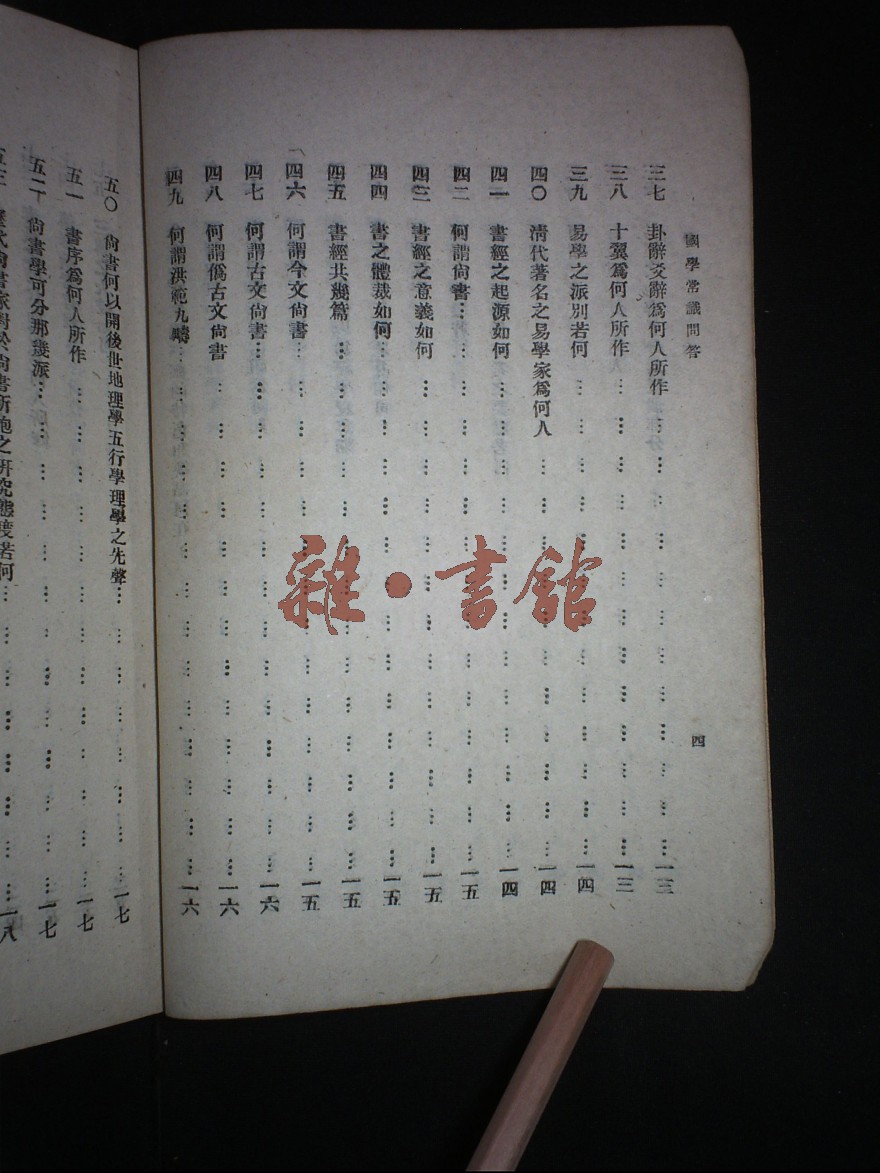 國學常識問答
四
三七 卦辭爻辭為何人所作……一三
三八 十翼為何人所作……一三
三九 易學之派別若何……一四
四〇 清代著名之易學家為何人……一四
四一 書經之起源如何……一四
四二 何謂尚書……一五
四三 書經之意義如何……一五
四四 書之體裁如何……一五
四五 書經共幾篇……一五
四六 何謂今文尚書……一五
四七 何謂古文尚書……一六
四八 何謂偽古文尚書……一六
四九 何謂洪範九疇……一六
五〇 尚書何以開後世地理學五行學理學之先聲……一七
五一 書序為何人所作……一七
五二 尚書學可分那幾派……一七
五三 歷代尚書家對於尚書所抱之研究態度若何……一八
雜·書館